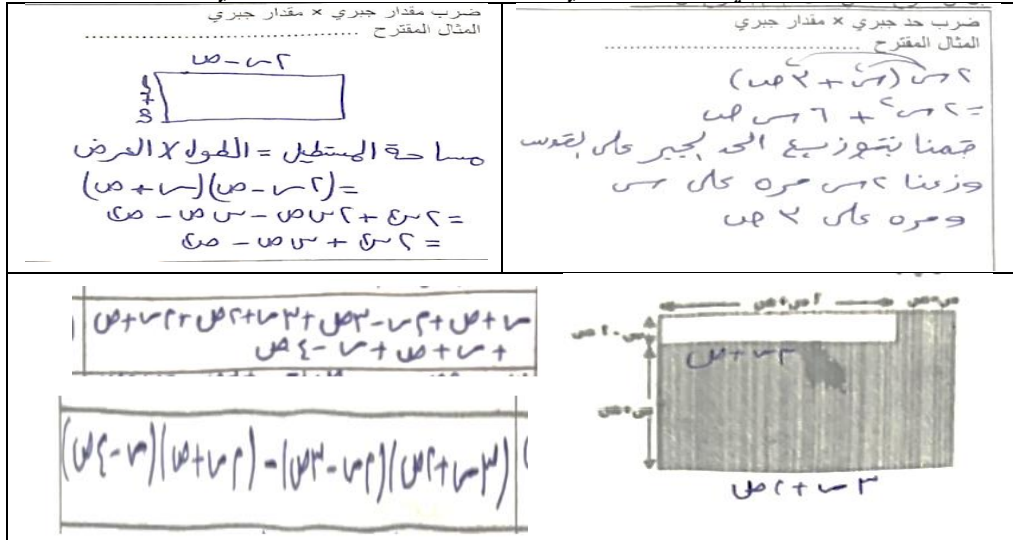 ضرب حد جبري × مقدار جبري
المثال المقترح ..........................................
٢س (س + ٣ص)
= ٢س٢ + ٦ س ص
قمنا بتوزيع الحد لجبر على لقوس
وزعنا ٢س مره على س
ومره على ٣ ص
ضرب مقدار جبري × مقدار جبري
المثال المقترح ..........................................
٢س - ص
س + ص
مساحة المستطيل = الطول × العرض
= (٢س - ص)(س + ص)
= ٢س٢ + ٢س ص - س ص - ص٢
= ٢س٢ + س ص - ص٢
٢س + ص
س - ص
٢س + ص
س + ص
٣س + ٢ص
س + ص + ٢س - ٣ص + ٣س + ٢ص + ٢س + ص
+ س + ص + س - ٤ص
(٣س + ٢ص)(٢س - ٣ص) - (٢س + ص)(س - ٤ص)